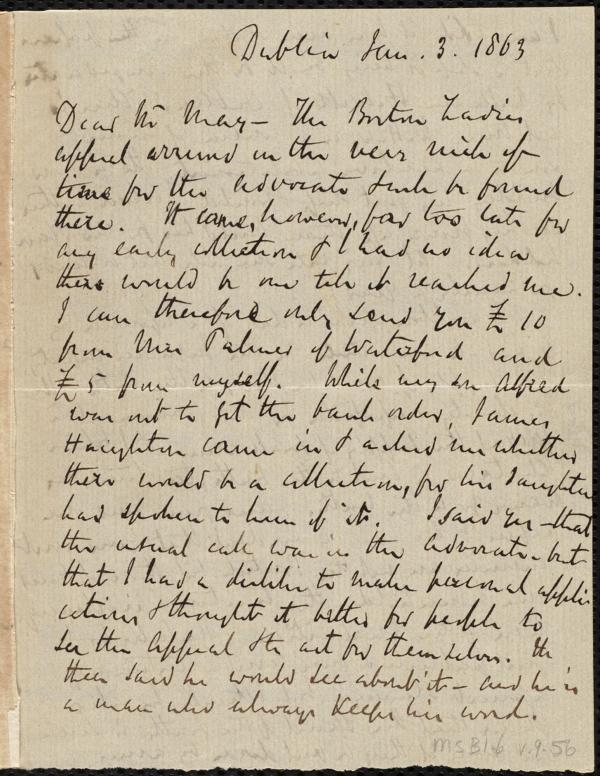 Dublin Jan. 3. 1863
Dear Mr May – The Boston Ladies
appeal arrived in the very nick of
time for the Advocate & will be found
there. It came, however, far too late for
any early collection & I had no idea
there would be one till it reached me.
I can therefore only send you £10
from Miss Palmer of Waterford and
£5 from myself. While my son Alfred
was out to get the bank order, James
Haughton came in & asked me whether
there would be a collection, for his daughter
had spoken to him of it. I said yes – that
the usual call was in the Advocate – but
that I had a dislike to make personal appli
cations & thought it better for people to
see the Appeal & to act for themselves. He
then said he would see about it – and he is
a man who always keeps his word.
MS B 1.6 v.9. 56